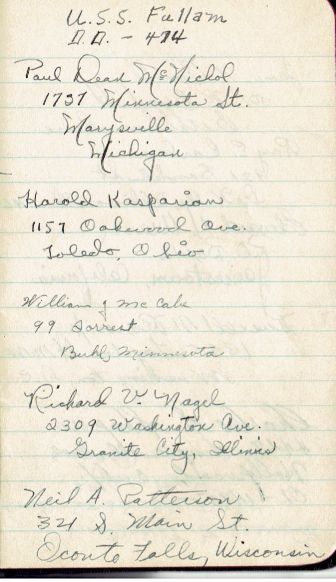 U.S.S. Fullam
D.D. - 474
Paul Dean McNichol
1737 Minnesota St.
Marysville
Michigan
Harold Kasparian
1157 Oakwood Ave.
Toledo, Ohio
William J McCabe
99 Forrest
Buhl, Minnesota
Richard V. Nagel
2309 Washington Ave.
Granite City, Illinois
Neil A. Patterson
321 S. Main St.
Oconto Falls, Wisconsin